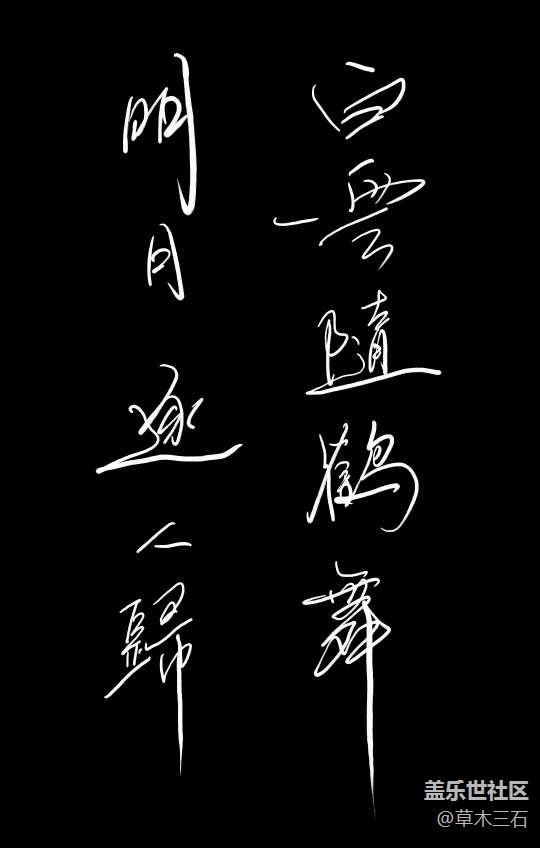 白雲隨鶴舞
明月逐人歸
盖乐世社区
@草木三石